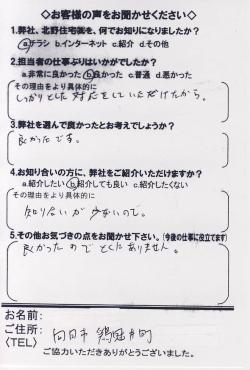 ◇お客様の声をお聞かせください◇
1.弊社、北野住宅㈱を、何でお知りになりましたか?
a.チラシ b.インターネット c.紹介 d.その他
2.担当者の仕事ぶりはいかがでしたか?
a.非常に良かった b.良かった c.普通 d.悪かった
その理由をより具体的に
しっかりとした対応をしていただけたから。
3.弊社を選んで良かったとお考えでしょうか?
良かったです。
4.お知り合いの方に、弊社をご紹介いただけますか?
a.紹介したい b.紹介しても良い c.紹介したくない
その理由をより具体的に
知り合いが少ないので。
5.その他お気づきの点をお聞かせ下さい。(今後の仕事に役立てます)
良かったのでとくにありません。
お名前:
ご住所: 向日市 鶏冠井町
〈TEL〉
ご協力いただきありがとうございました。